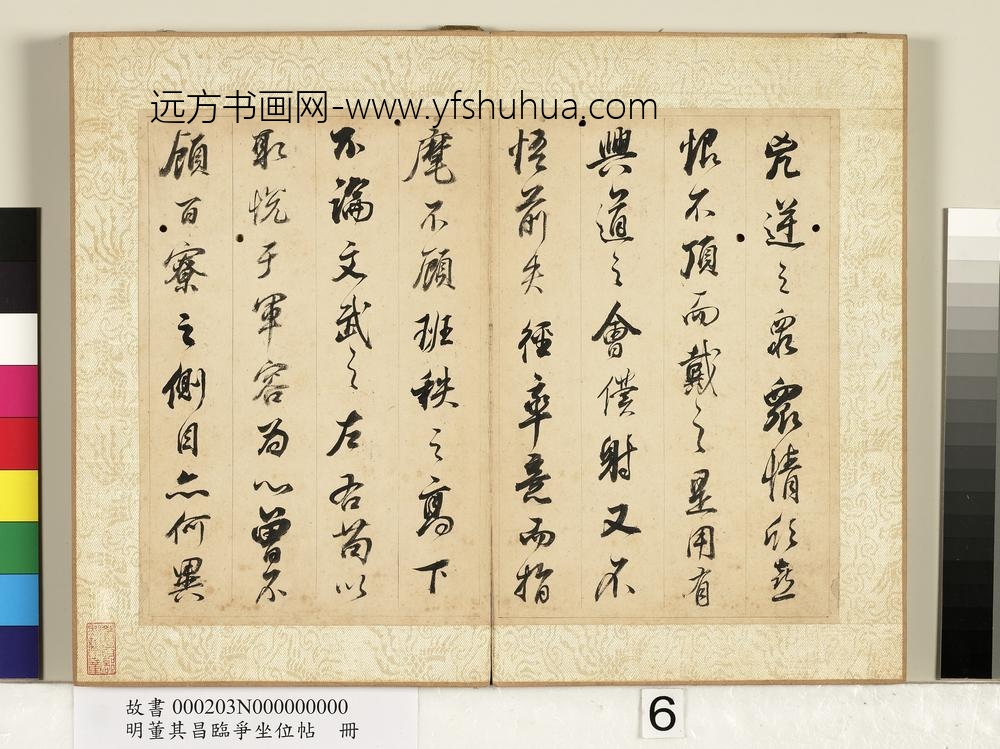 远方书画网-www.yfshuhua.com
兇逆之衆衆情欣喜
恨不頂而戴之是用有
興道之會僕射又不
悟前失徑率意而指
麾不顧班秩之高下
不論文武之左右苟以
取悅于軍容為心曾不
顧百寮之側目亦何異
故書 000203N000000000
明董其昌臨爭坐位帖 冊
6